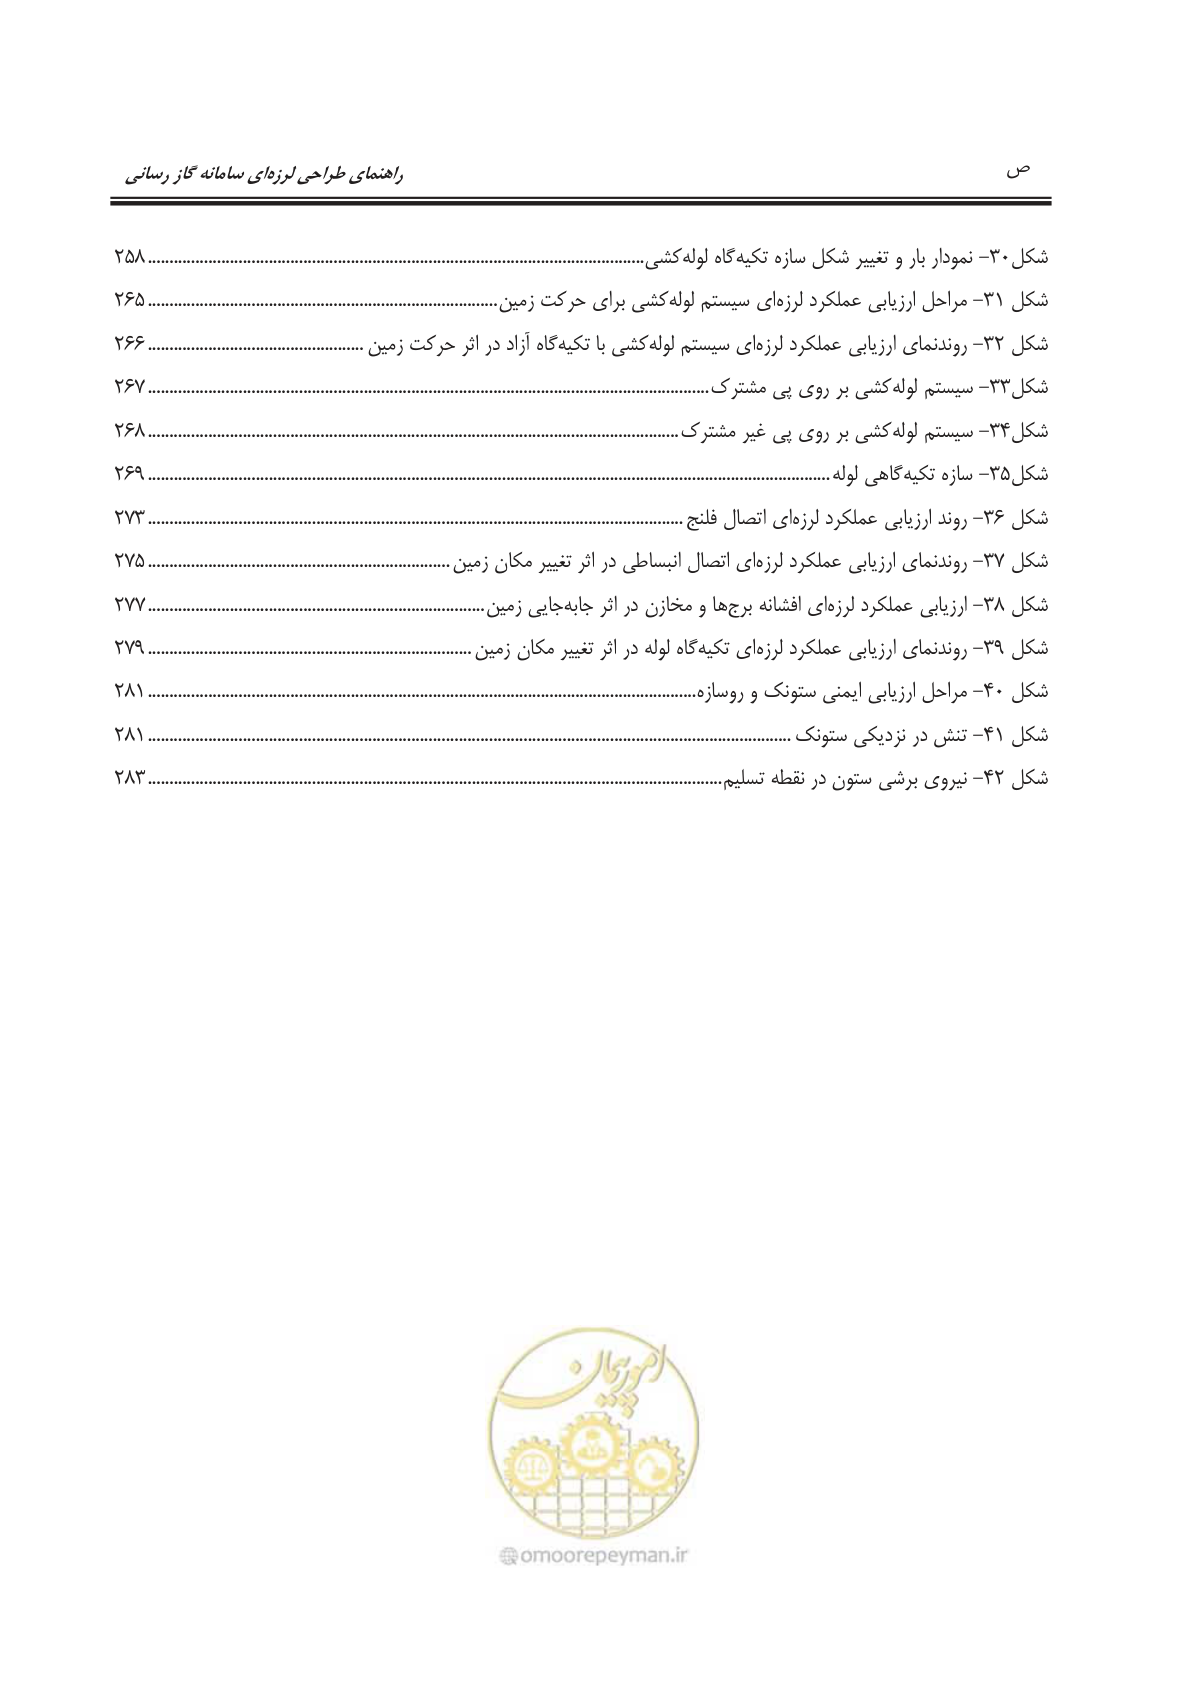 ص
راهنمای طراحی لرزه‌ای سامانه گاز رسانی
شکل۳۰- نمودار بار و تغییر شکل سازه تکیه‌گاه لوله‌کشی ........ ۲۵۸
شکل ۳۱- مراحل ارزیابی عملکرد لرزه‌ای سیستم لوله‌کشی برای حرکت زمین ........ ۲۶۵
شکل ۳۲- روندنمای ارزیابی عملکرد لرزه‌ای سیستم لوله‌کشی با تکیه‌گاه آزاد در اثر حرکت زمین ........ ۲۶۶
شکل۳۳- سیستم لوله‌کشی بر روی پی مشترک ........ ۲۶۷
شکل۳۴- سیستم لوله‌کشی بر روی پی غیر مشترک ........ ۲۶۸
شکل۳۵- سازه تکیه‌گاهی لوله ........ ۲۶۹
شکل ۳۶- روند ارزیابی عملکرد لرزه‌ای اتصال فلنج ........ ۲۷۳
شکل ۳۷- روندنمای ارزیابی عملکرد لرزه‌ای اتصال انبساطی در اثر تغییر مکان زمین ........ ۲۷۵
شکل ۳۸- ارزیابی عملکرد لرزه‌ای افشانه برج‌ها و مخازن در اثر جابه‌جایی زمین ........ ۲۷۷
شکل ۳۹- روندنمای ارزیابی عملکرد لرزه‌ای تکیه‌گاه لوله در اثر تغییر مکان زمین ........ ۲۷۹
شکل ۴۰- مراحل ارزیابی ایمنی ستونک و روسازه ........ ۲۸۱
شکل ۴۱- تنش در نزدیکی ستونک ........ ۲۸۱
شکل ۴۲- نیروی برشی ستون در نقطه تسلیم ........ ۲۸۳
امور پیمان
@omoorepeyman.ir